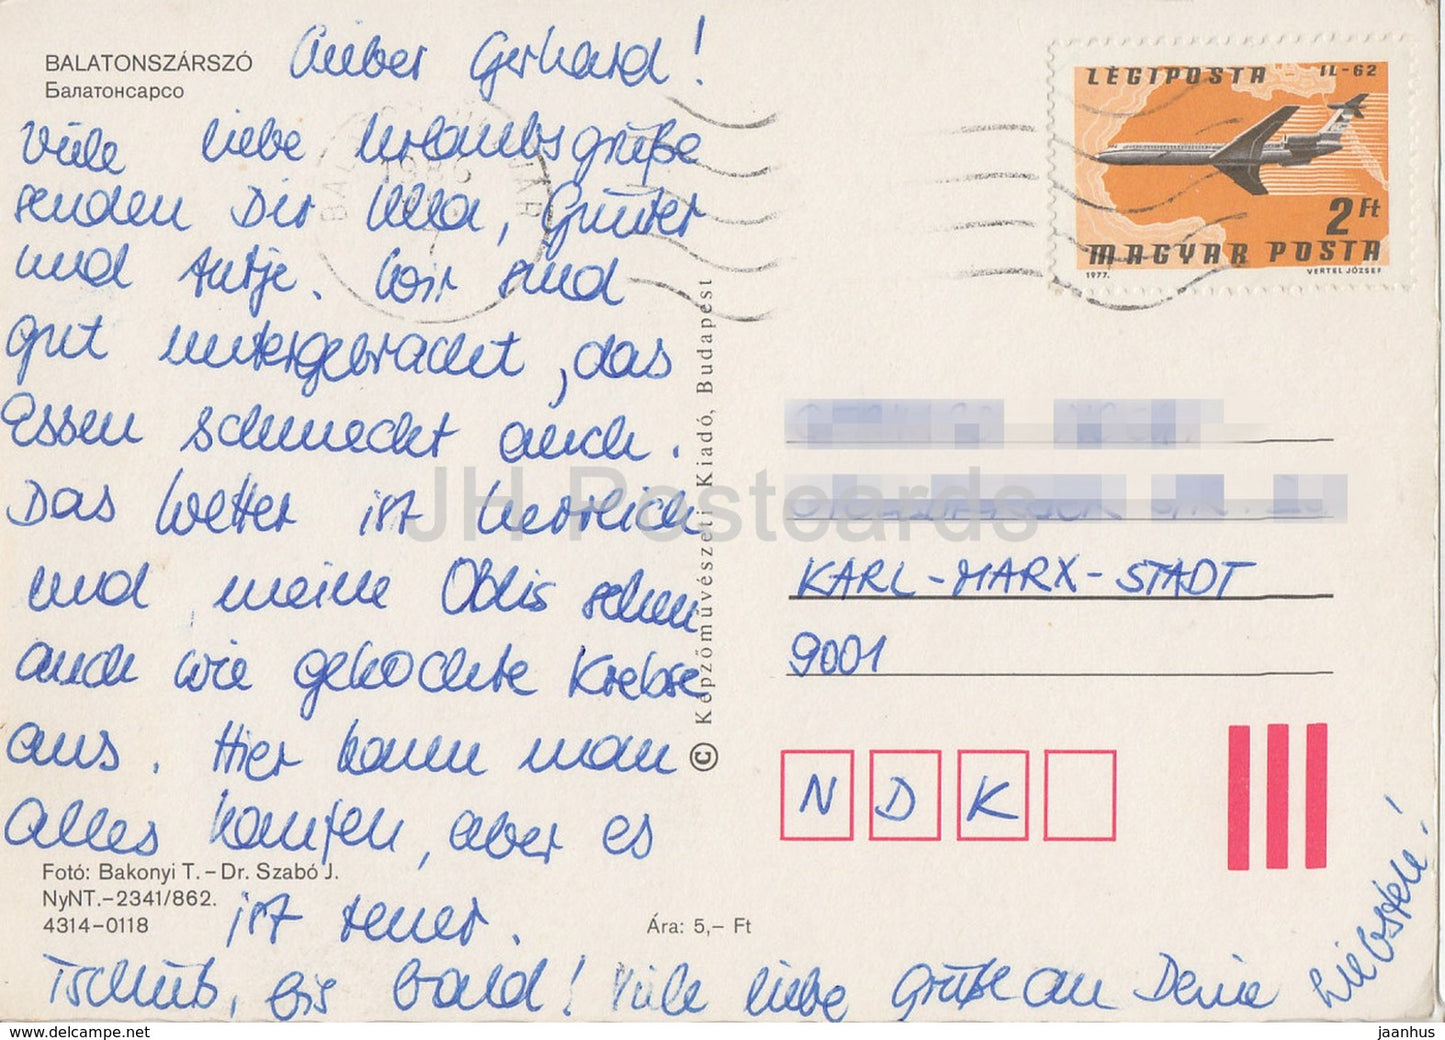 BALATONSZÁRSZÓ
Балатонсарсо
Lieber Gerhard!
Viele liebe Urlaubsgrüße
senden Dir Ulla, Günter
und Antje. Wir sind
gut untergebracht, das
Essen schmeckt auch.
Das Wetter ist herrlich
und meine Oblis sehen
auch wie gekochte Krebse
aus. Hier kann man
alles kaufen, aber es
ist teuer.
Tschüß, bis bald! Viele liebe Grüße an Deine
Liebsten!
Fotó: Bakonyi T. – Dr. Szabó J.
NyNT.–2341/862.
4314–0118
Ára: 5,– Ft
© Képzőművészeti Kiadó, Budapest
LÉGIPOSTA IL-62
2 Ft
MAGYAR POSTA
1977. VERTEL JÓZSEF
KARL-MARX-STADT
9001
N D K
JH Postcards
jaanhus